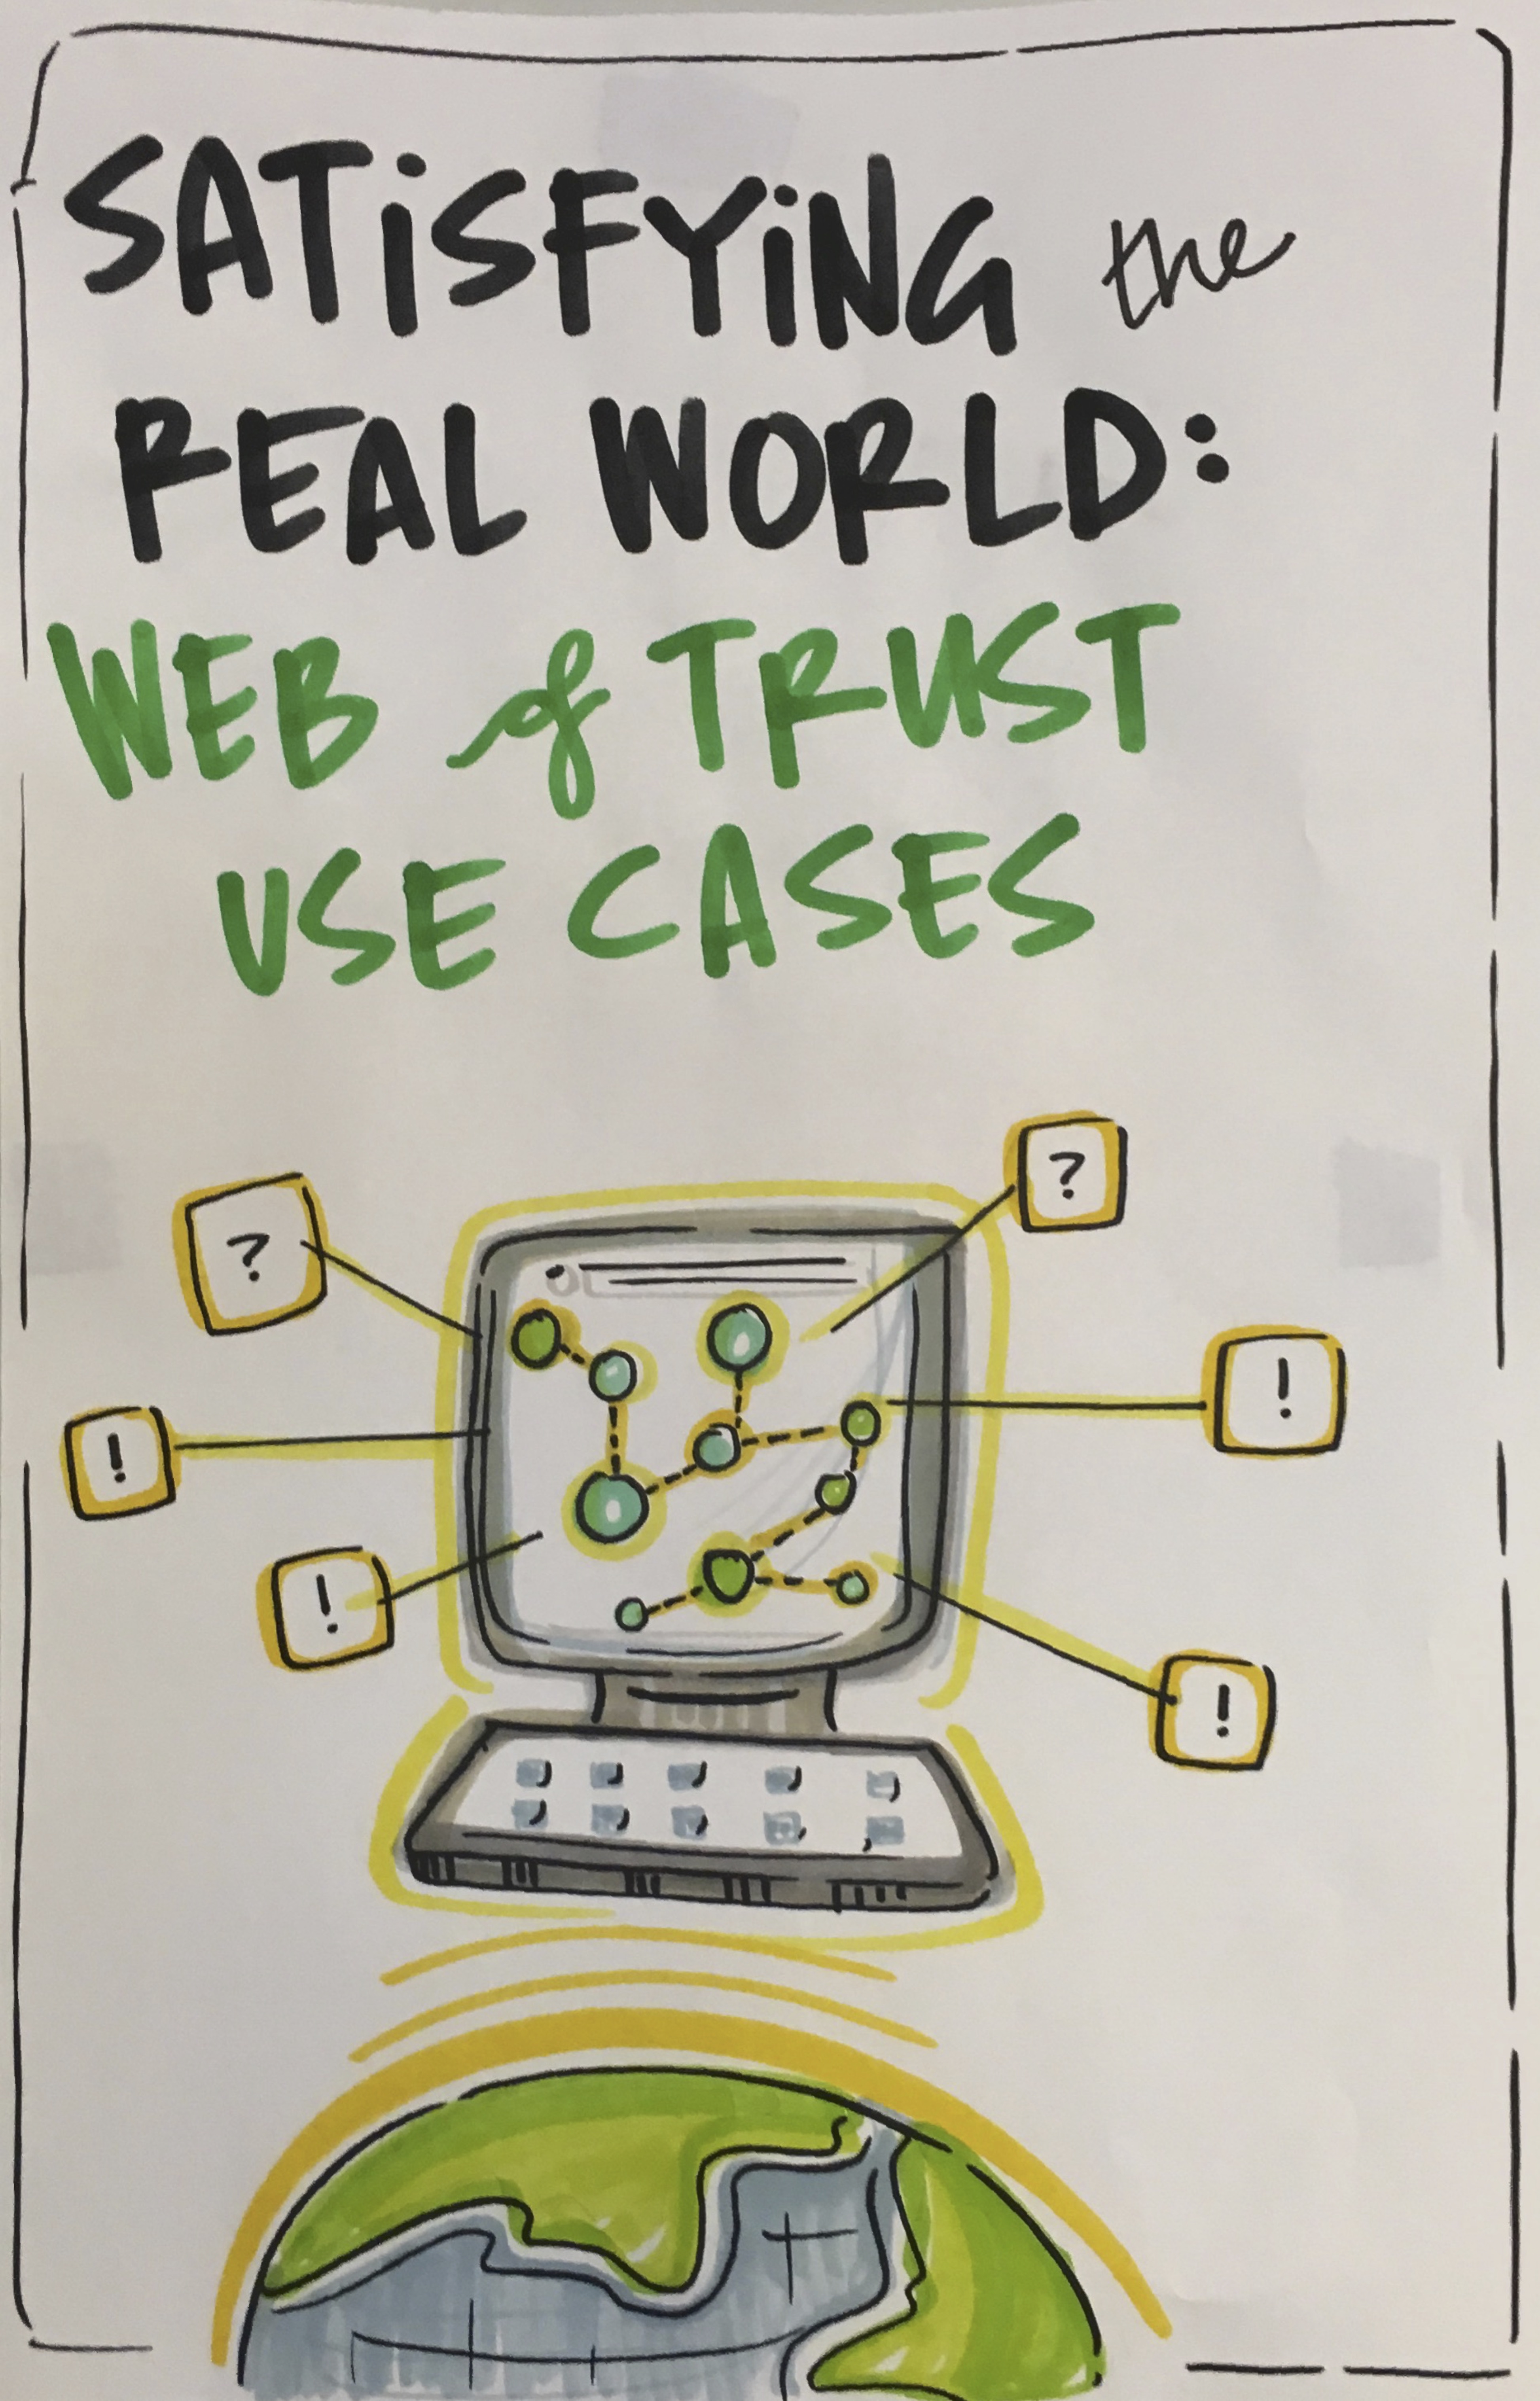 SATiSFYiNG the
REAL WORLD:
WEB of TRUST
USE CASES
?
?
!
!
!
!